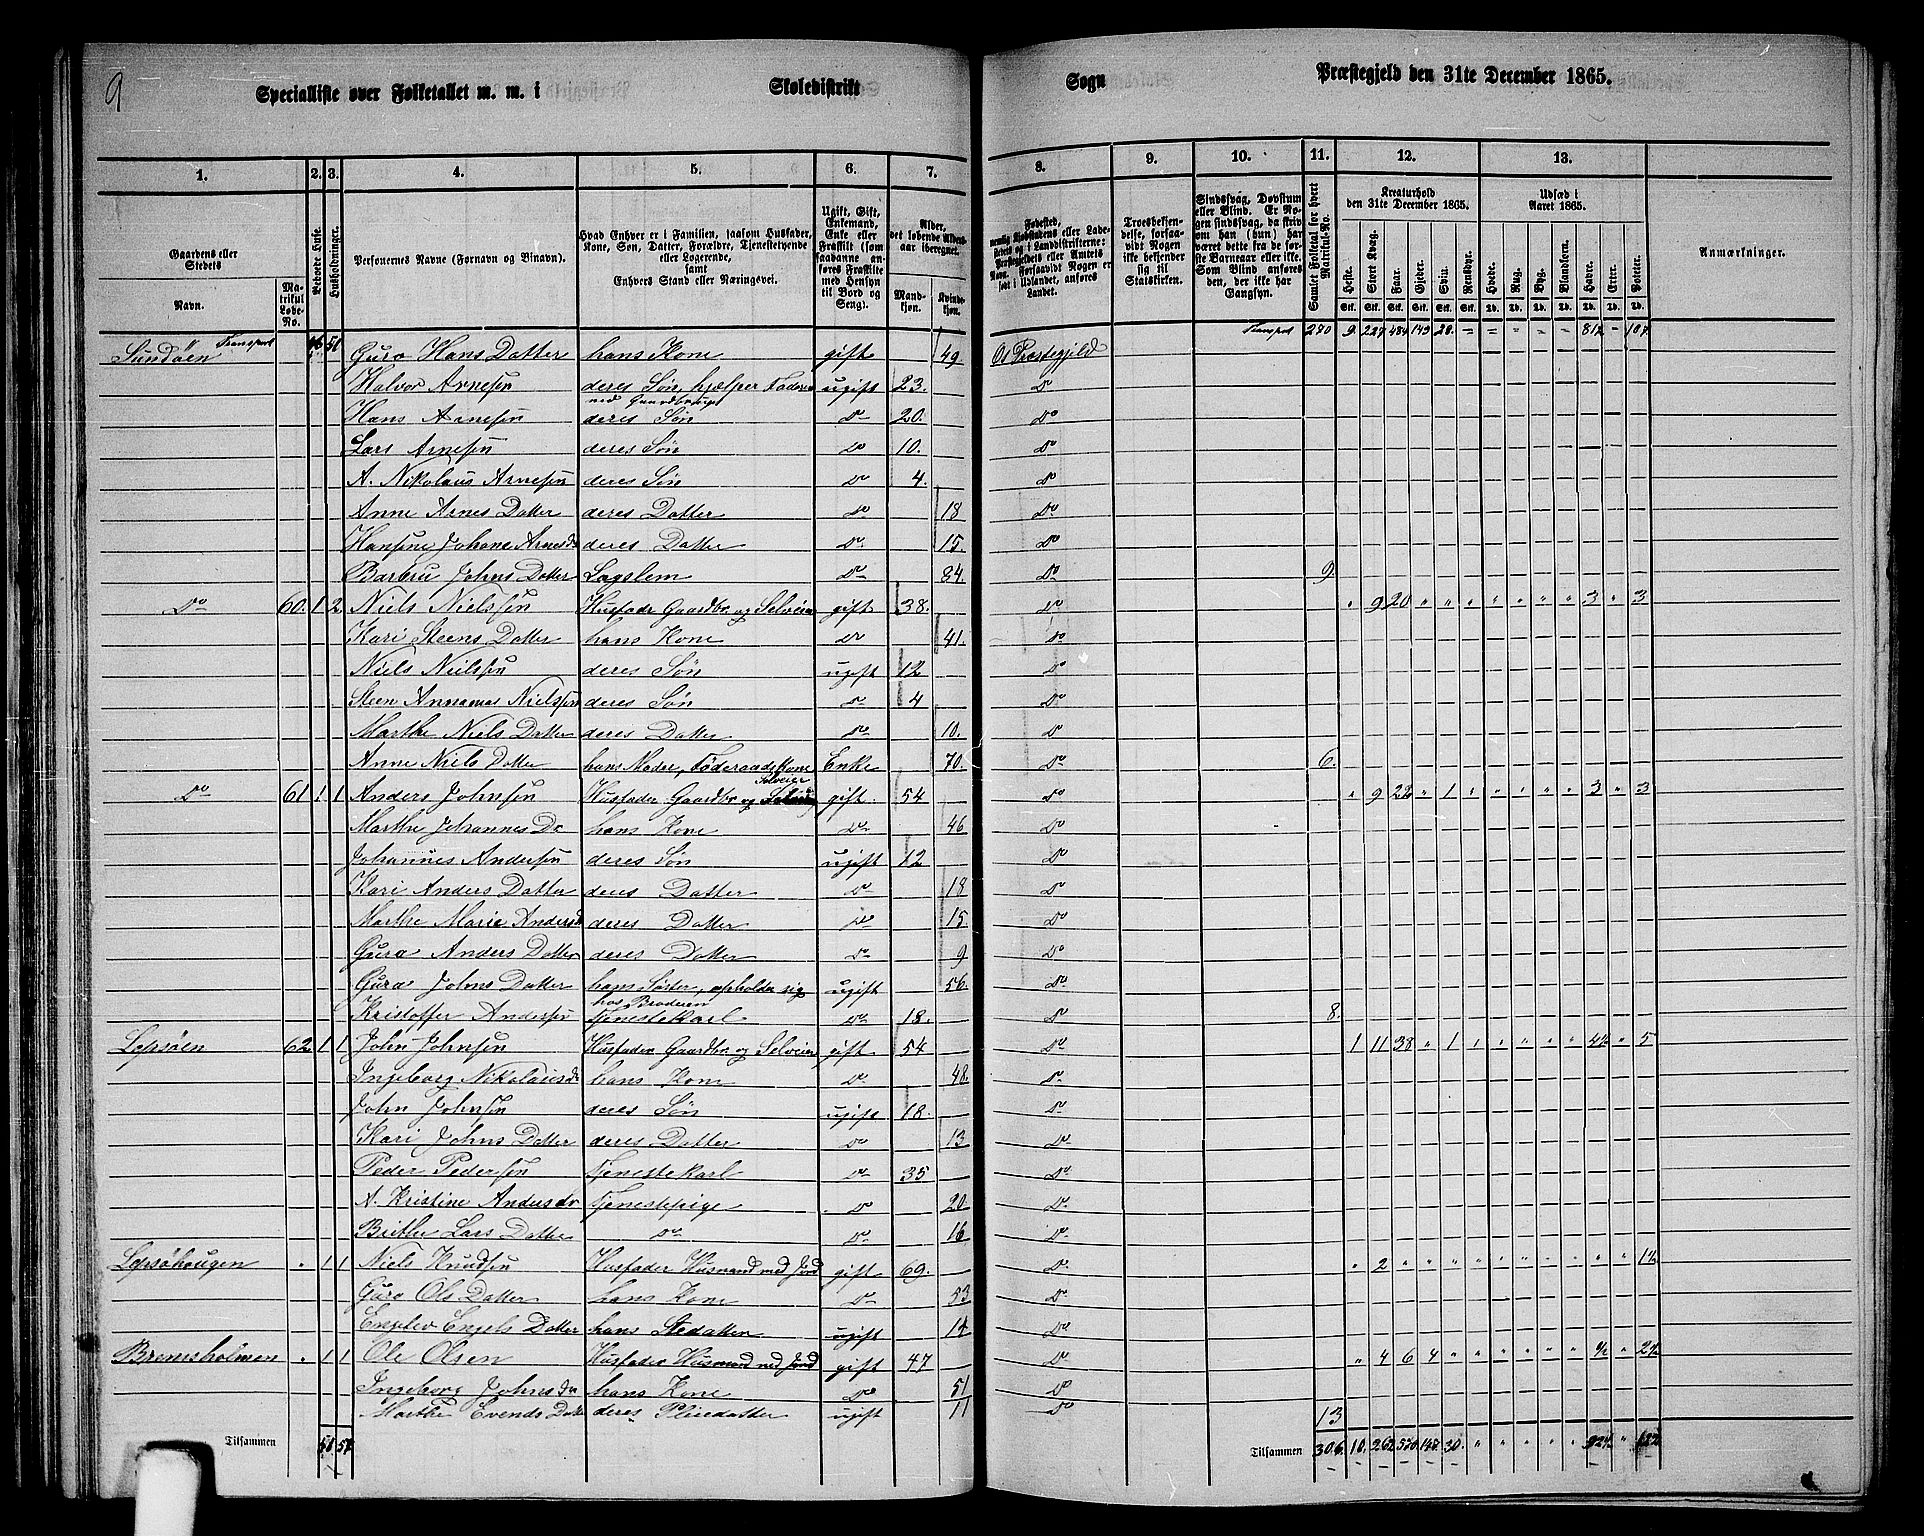 9
Specialliste over Folketallet m. m. i Skoledistrikt Sogn Præstegjeld den 31te December 1865.
1. 2. 3. 4. 5. 6. 7. 8. 9. 10. 11. 12. 13.
Gaardens eller Stedets
Navn.
Matrikul Løbe-No.
Beboede Huse.
Husholdninger.
Personernes Navne (Fornavn og Binavn).
Hvad Enhver er i Familien, saasom Husfader, Kone, Søn, Datter, Forældre, Tjenestetyende eller Logerende, samt Enhvers Stand eller Næringsvei.
Ugift, Gift, Enkemand, Enke eller Fraskilt (saadanne anføres Fraskilte med Hensyn til Bord og Seng).
Alder, det løbende Alders-aar iberegnet.
Mandkjøn. Kvindekjøn.
Fødested,
Troesbekjendelse, forsaavidt Nogen ikke bekjender sig til Statskirken.
Sindssvag, Døvstum eller Blind. Er Nogen sindssvag, da skriv om han (hun) har været dette fra de første Barneaar eller ikke. Som Blind anføres den, der ikke har Gangsyn.
Samlet Folketal for hvert Matrikul-No.
Kreaturhold den 31te December 1865.
Heste. Stort Kvæg. Faar. Gjeder. Svin. Rensdyr.
Udsæd i Aaret 1865.
Hvede. Rug. Byg. Blandkorn. Havre. Erter. Poteter.
Anmærkninger.
Transport 270 9 227 484 143 28 " " " " " 812 " 107
Sundøen Transport 46 50 Guro Hans Datter hans Kone gift 49 Os Præstegjeld
Halvor Arnesen deres Søn hjælper Faderen med Gaardbruget ugift 23. Do
Hans Arnesen deres Søn Do 20. Do
Lars Arnesen deres Søn Do 10. Do
A. Nikolaus Arnesen deres Søn Do 4. Do
Anne Arnes Datter deres Datter Do 18 Do
Hansine Johane Arnesd. deres Datter Do 15. Do
Barbru Johns Datter Lagslem Do 84. Do 9.
Do 60. 1 2 Niels Nielssen Husfader Gaardbr. og Selveier gift 38. Do " 9 20 " " " " " " " 3 " 3
Kari Steens Datter hans Kone Do 41. Do
Niels Nielsen deres Søn ugift 12 Do
Steen Annanias Nielsen deres Søn Do 4 Do
Marthe Niels Datter deres Datter Do 10. Do
Anne Niels Datter hans Moder, Føderaadskone Enke 70. Do 6.
Do 61 1 1 Anders Johnsen Husfader Gaardbr. og Selveier gift. 54 Do " 9 22 " 1 " " " " " 3 " 3
Marthe Johannes D. hans Kone Do 46 Do
Johannes Andersen deres Søn ugift 12 Do
Kari Anders Datter deres Datter Do 18 Do
Marthe Marie Andersd deres Datter Do 15 Do
Guro Anders Datter deres Datter Do 9 Do
Guro Johns Datter hans Søster, opholder sig hos Broderen ugift 56. Do
Kristoffer Andersen Tjenestekarl Do 18. Do 8.
Lepsøen 62 1 1 John Johnsen Husfader Gaardbr og Selveier gift 54 Do 1 11 38 " 1 " " " " " 4½ " 5
Ingeborg Nikolausd. hans Kone Do 48. Do
John Johnsen deres Søn ugift 18. Do
Kari Johns Datter deres Datter Do 13 Do
Peder Pedersen Tjenestekarl Do 35 Do
A. Kristine Andersdr Tjenestepige Do 20 Do
Brithe Lars Datter Do Do 16 Do
Lepsøhougen " 1 1 Niels Knudsen Husfader Husmand med Jord gift 69. Do " 2 " " " " " " " " " " 1½
Guro Ols Datter hans Kone Do 53 Do
Engelev Engels Datter hans Stedatter ugift 14 Do
Bremsholmen " 1 1 Ole Olsen Husfader Husmand med Jord gift 47 Do " 4 6 4 " " " " " " ½ " 2½
Ingeborg Johns dr hans Kone Do 51 Do
Marthe Evends Datt deres Pleiedatter ugift 11 Do 13
Tilsammen 51 57 Tilsammen 306. 10. 262 570 147 30. " " " " " 92½ " 122